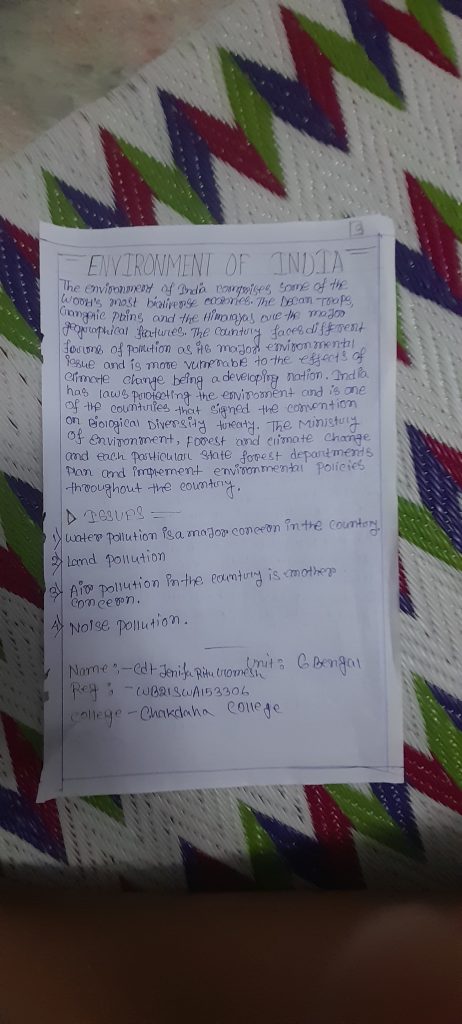 3
ENVIRONMENT OF INDIA
The environment of India comprises some of the
world's most biodiverse ecozones. The Deccan Traps,
Gangetic Plains and the Himalayas are the major
geographical features. The country faces different
forms of pollution as its major environmental
issue and is more vulnerable to the effects of
climate change being a developing nation. India
has laws protecting the environment and is one
of the countries that signed the convention
on Biological Diversity treaty. The Ministry
of environment, Forest and climate change
and each particular state forest departments
plan and implement environmental policies
throughout the country.
ISSUES
1) water pollution is a major concern in the country.
2) Land pollution
3) Air pollution in the country is another
concern.
4) Noise pollution.
Name :- Cdt Jenifa Unit : 6 Bengal
Reg : - WB21SWA153306
College - Chakdaha College